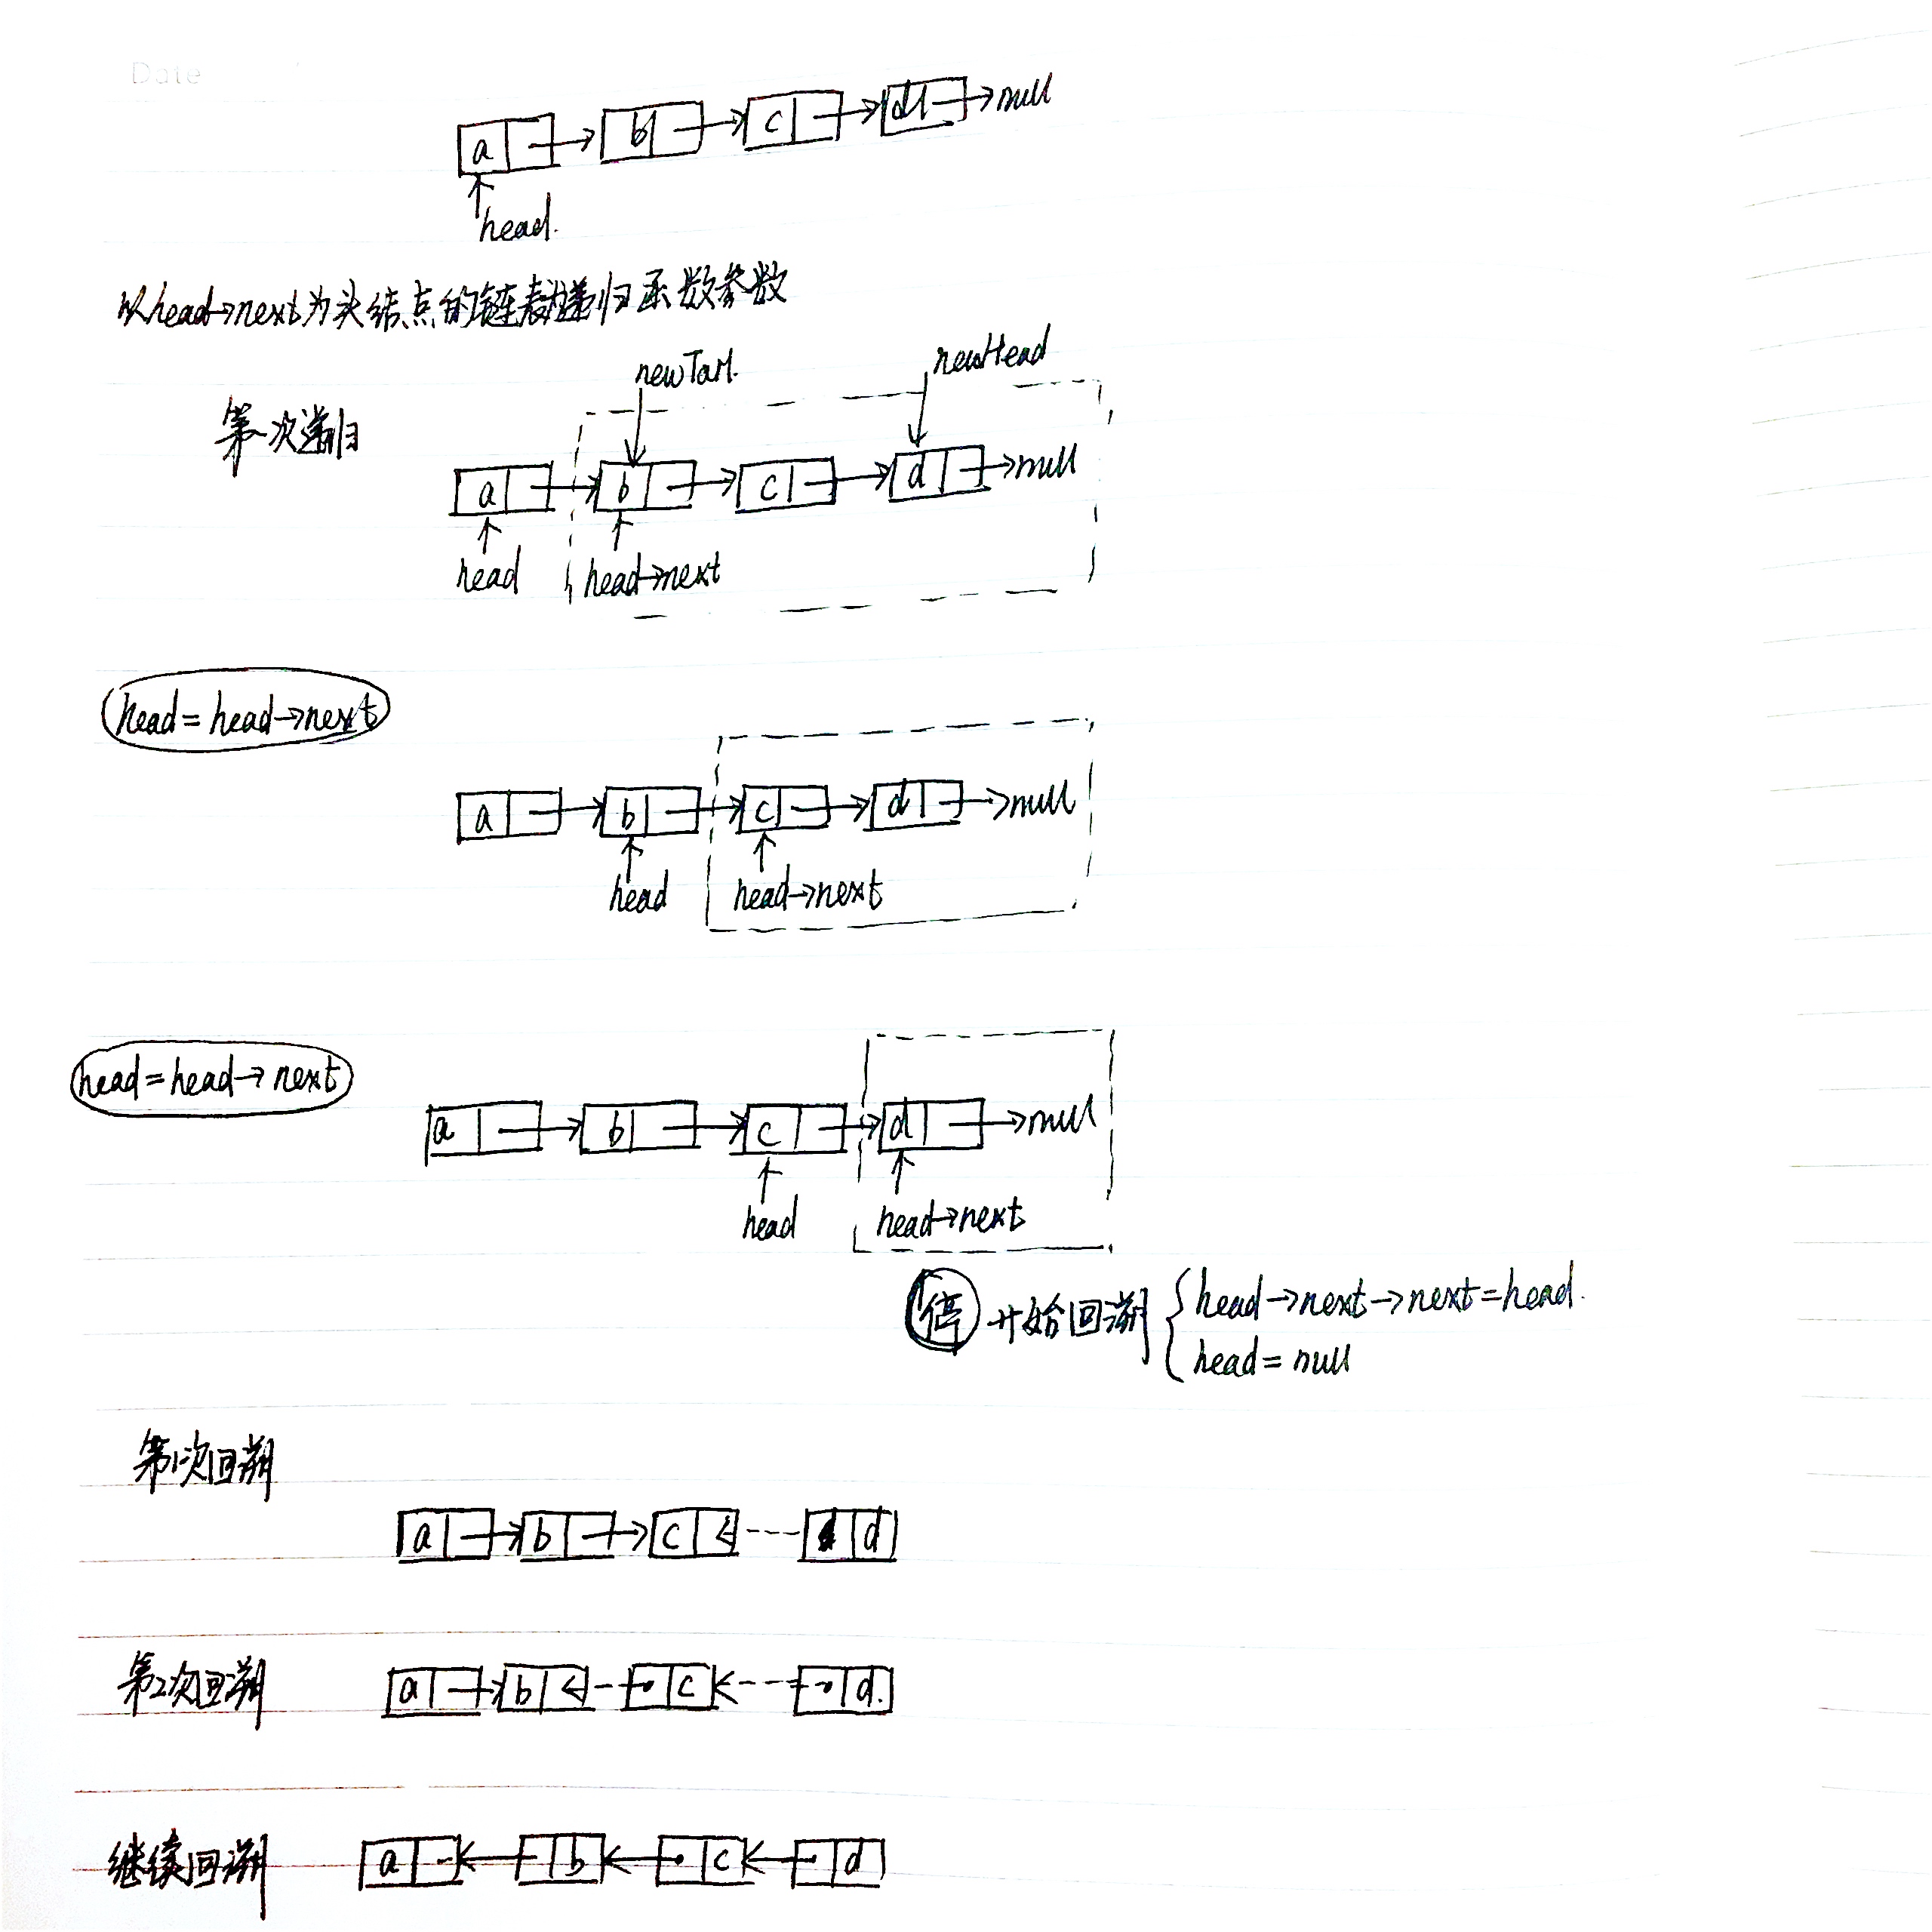 Date
a b c d null
head.
以head→next为头结点的链表递归函数参数
newTail. newHead
第一次递归
a b c d null
head head→next
head=head→next
a b c d null
head head→next
head=head→next
a b c d null
head head→next
停 开始回溯 { head→next→next=head.
head=null
第1次回溯
a b c d
第2次回溯
a b c d.
继续回溯
a b c d